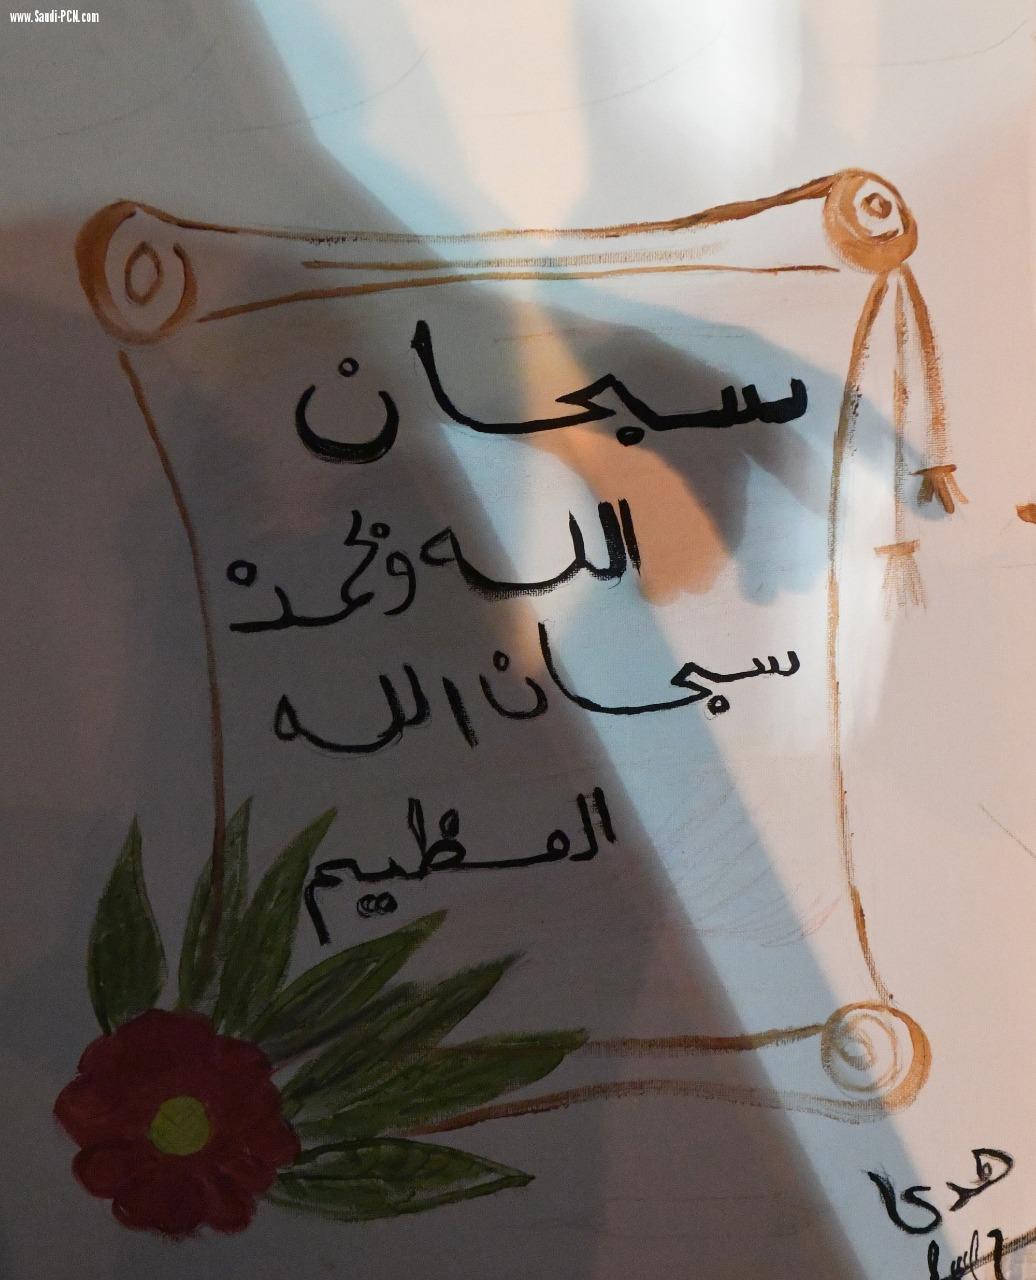 www.Saudi-PCN.com
سبحان
الله وبحمده
سبحان الله
العظيم
هدى